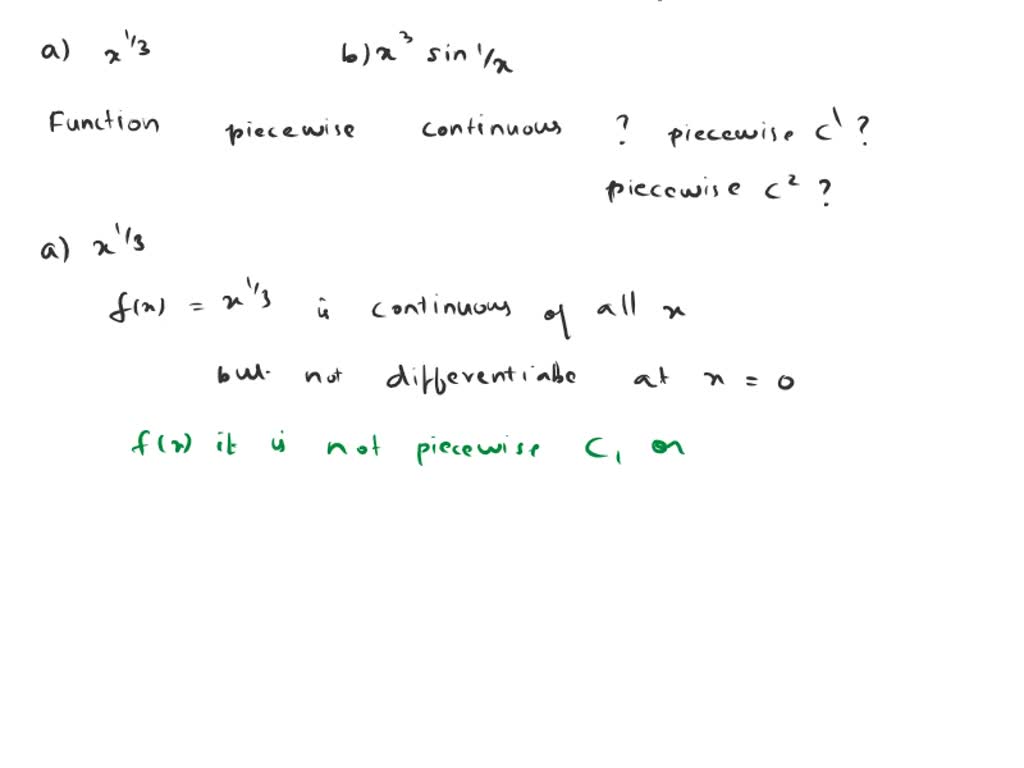 a) x^1/3 b) x^3 sin 1/x
Function piecewise continuous ? piecewise c^1 ?
piecewise c^2 ?
a) x^1/3
f(x) = x^1/3 is continuous of all x
but not differentiabe at x = 0
f(x) it is not piecewise C, on